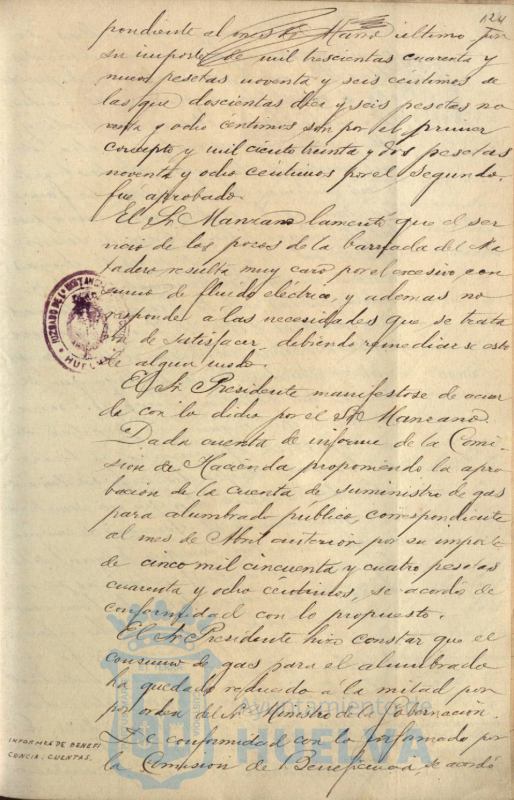 124
pondiente al mes de Marzo último por
su importe de mil trescientas cuarenta y
nueve pesetas noventa y seis céntimos de
las que doscientas diez y seis pesetas no
venta y ocho céntimos son por el primer
concepto y mil ciento treinta y dos pesetas
noventa y ocho centimos por el segundo,
fué aprobado.
El Sr. Manzano lamentó que el ser
vicio de los pozos de la barriada del Ma
tadero resulta muy caro por el excesivo con
sumo de fluido eléctrico, y ademas no
responder á las necesidades que se trata
ba de satisfacer, debiendo remediarse esto
de algun modo.
El Sr. Presidente manifestose de acuer
do con lo dicho por el Sr. Manzano.
Dada cuenta de informe de la Comi-
sion de Hacienda proponiendo la apro
bación de la cuenta de suministro de gas
para alumbrado publico, correspondiente
al mes de Abril anterior por su importe
de cinco mil cincuenta y cuatro pesetas
cuarenta y ocho céntimos, se acordó de
conformidad con lo propuesto.
El Sr. Presidente hizo constar que el
consumo de gas para el alumbrado
ha quedado reducido á la mitad por
por orden del Sr. Ministro de la Gobernación.
INFORMES DE BENEFI
CENCIA. CUENTAS.
De conformidad con lo informado por
la Comision de Beneficencia, se acordó
HUELVA
Ayuntamiento de
HUELVA